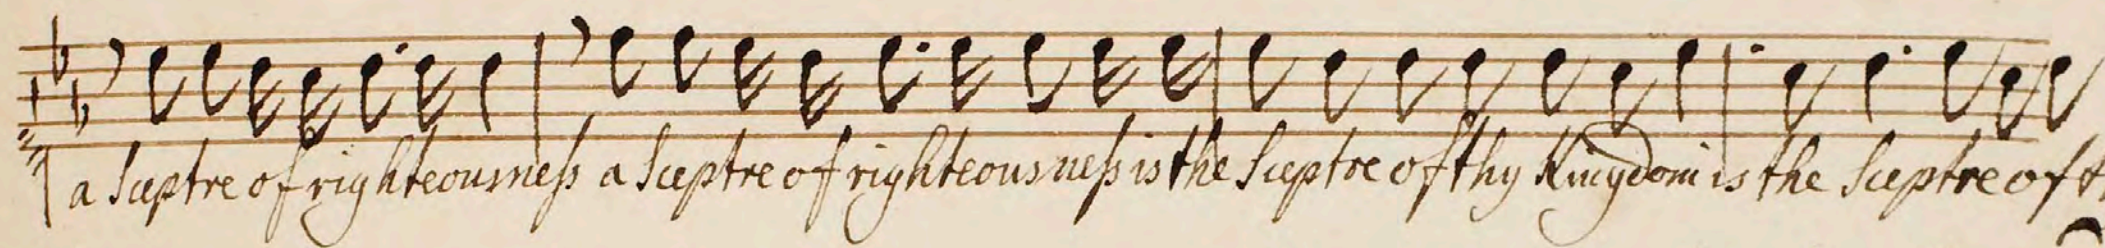 a Sceptre of righteousneſs a Sceptre of righteousneſs is the Sceptre of thy Kingdom is the Sceptre of